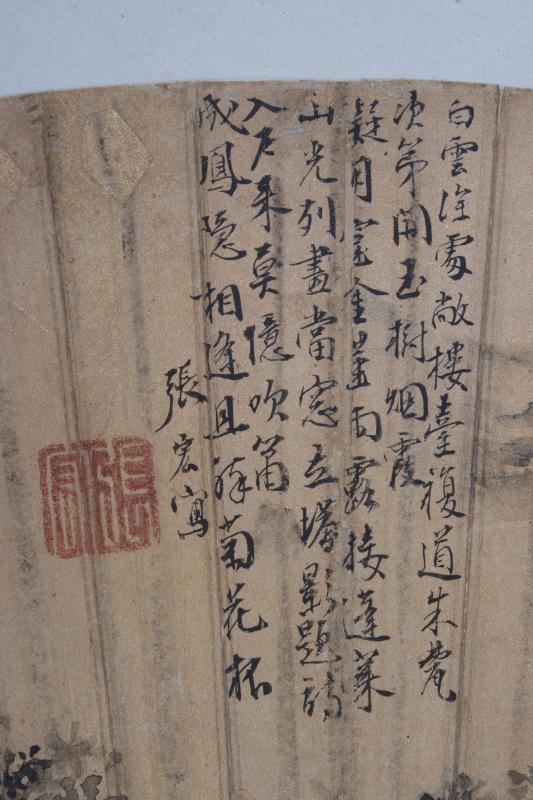 白雲深處敞樓臺複道朱甍
次第開玉樹烟霞
疑月窟金莖雨露接蓬萊
山光列畫當窓立塔影題詩
入戶來莫憶吹簫
成鳳隐相逢且醉菊花杯
張宏寫